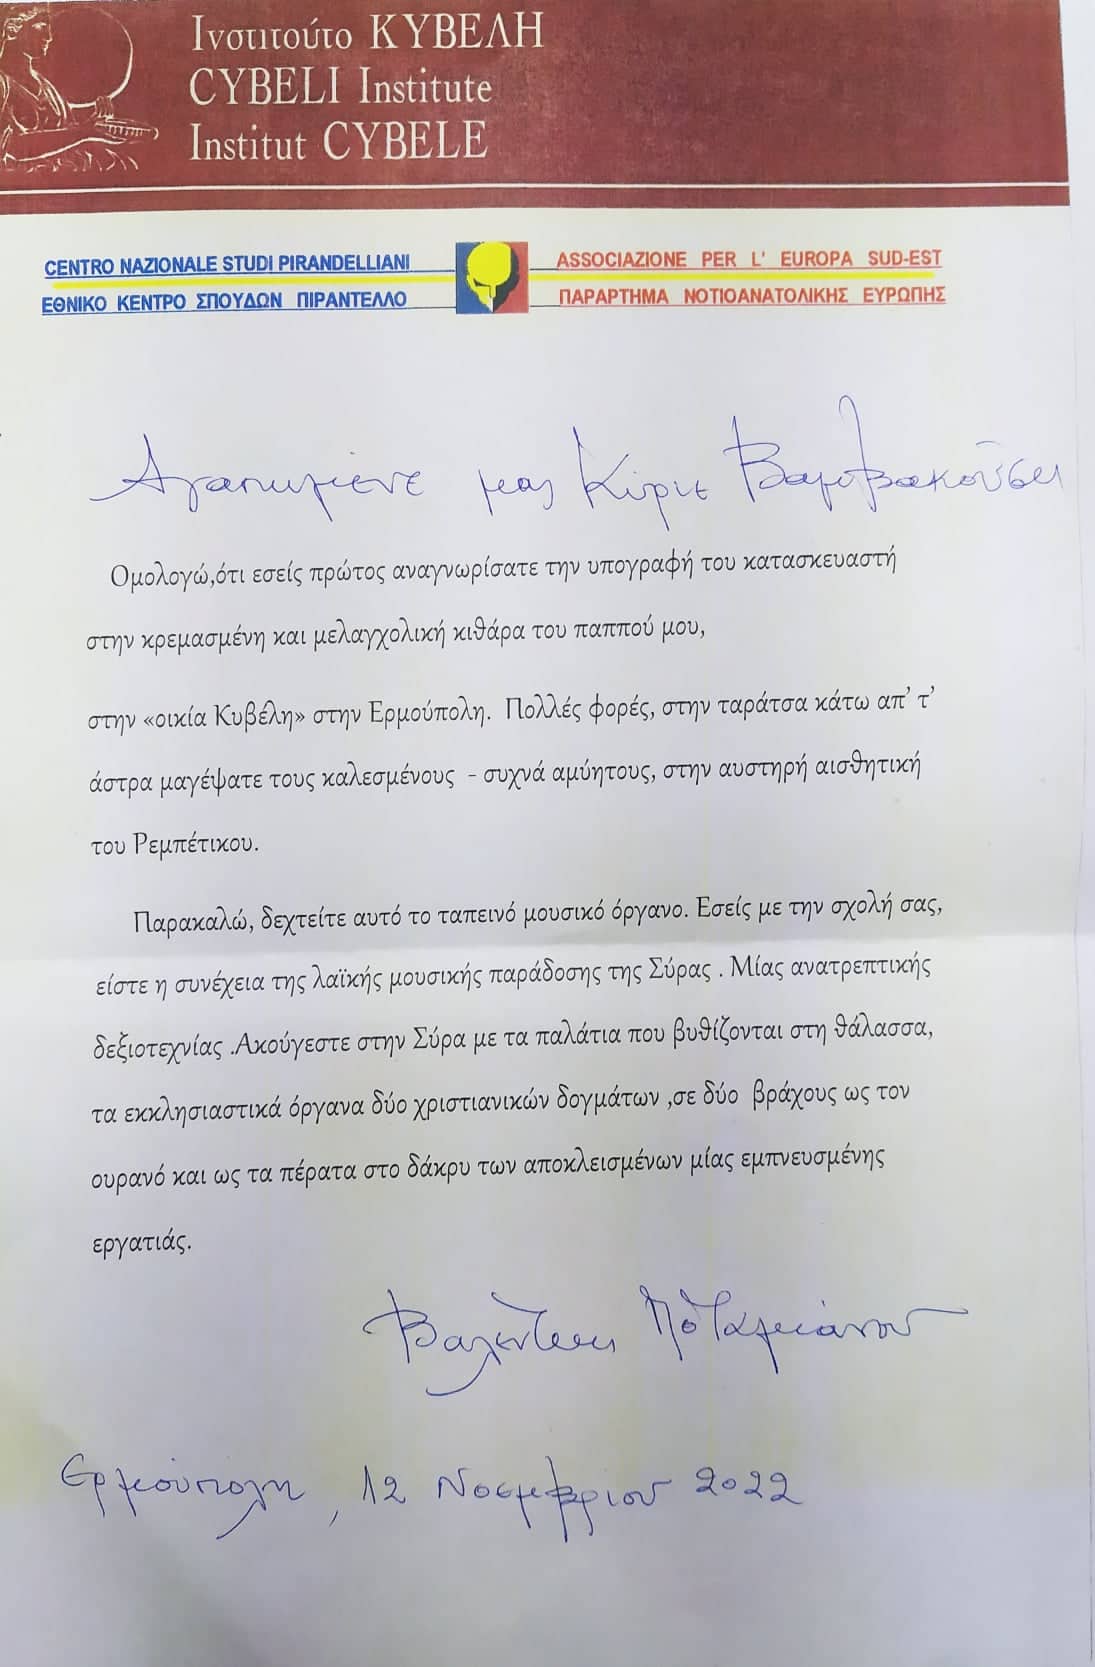 Ινστιτούτο ΚΥΒΕΛΗ
CYBELI Institute
Institut CYBELE
CENTRO NAZIONALE STUDI PIRANDELLIANI
ΕΘΝΙΚΟ ΚΕΝΤΡΟ ΣΠΟΥΔΩΝ ΠΙΡΑΝΤΕΛΛΟ
ASSOCIAZIONE PER L' EUROPA SUD-EST
ΠΑΡΑΡΤΗΜΑ ΝΟΤΙΟΑΝΑΤΟΛΙΚΗΣ ΕΥΡΩΠΗΣ
Αγαπημένε μας Κύριε Βαμβακούση
Ομολογώ,ότι εσείς πρώτος αναγνωρίσατε την υπογραφή του κατασκευαστή
στην κρεμασμένη και μελαγχολική κιθάρα του παππού μου,
στην «οικία Κυβέλη» στην Ερμούπολη. Πολλές φορές, στην ταράτσα κάτω απ’ τ’
άστρα μαγέψατε τους καλεσμένους - συχνά αμύητους, στην αυστηρή αισθητική
του Ρεμπέτικου.
Παρακαλώ, δεχτείτε αυτό το ταπεινό μουσικό όργανο. Εσείς με την σχολή σας,
είστε η συνέχεια της λαϊκής μουσικής παράδοσης της Σύρας . Μίας ανατρεπτικής
δεξιοτεχνίας .Ακούγεστε στην Σύρα με τα παλάτια που βυθίζονται στη θάλασσα,
τα εκκλησιαστικά όργανα δύο χριστιανικών δογμάτων ,σε δύο βράχους ως τον
ουρανό και ως τα πέρατα στο δάκρυ των αποκλεισμένων μίας εμπνευσμένης
εργατιάς.
Βαλεντίνη Ποταμιάνου
Ερμούπολη, 12 Νοεμβρίου 2022